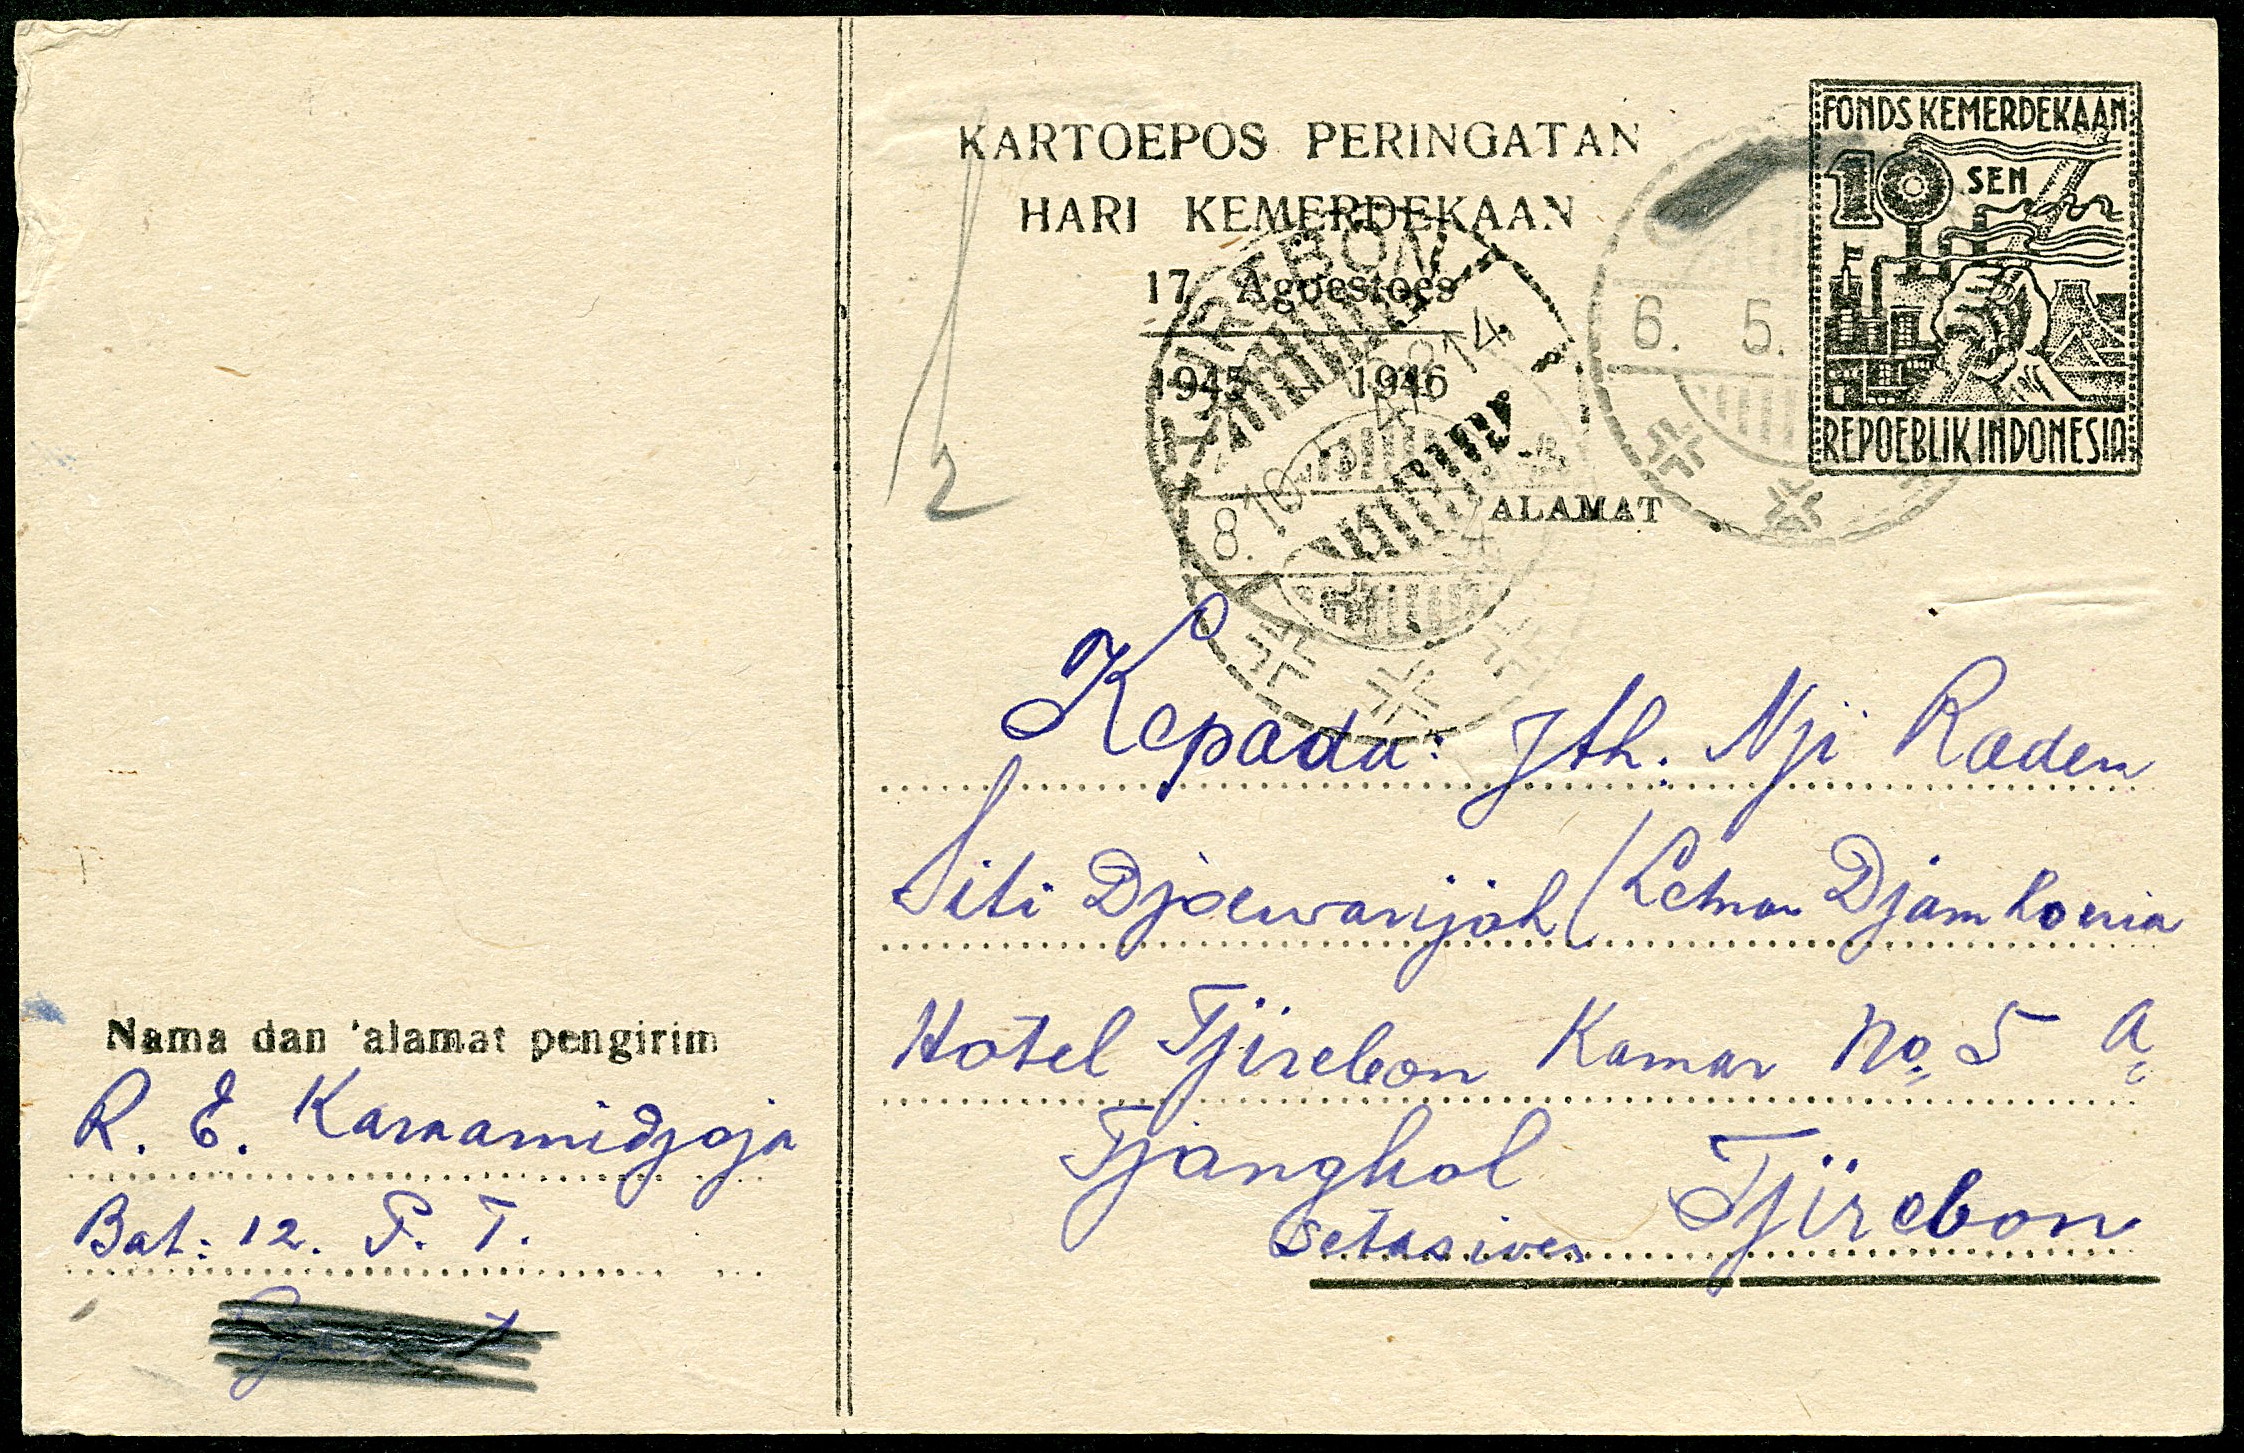 KARTOEPOS PERINGATAN
HARI KEMERDEKAAN
17 Agoestoes
1945 - 1946
FONDS KEMERDEKAAN
10 SEN
REPOEBLIK INDONESIA
TJIREBON
6. 5.
8.10.
14
ALAMAT
Kepada: Jth. Nji Raden
Siti Djoewarijah (Letnan Djamhoeria
Hotel Tjirebon Kamar No. 5 A
Tjangkol Tjirebon
Nama dan 'alamat pengirim
R. E. Karnamidjoja
Bat: 12. P. T.